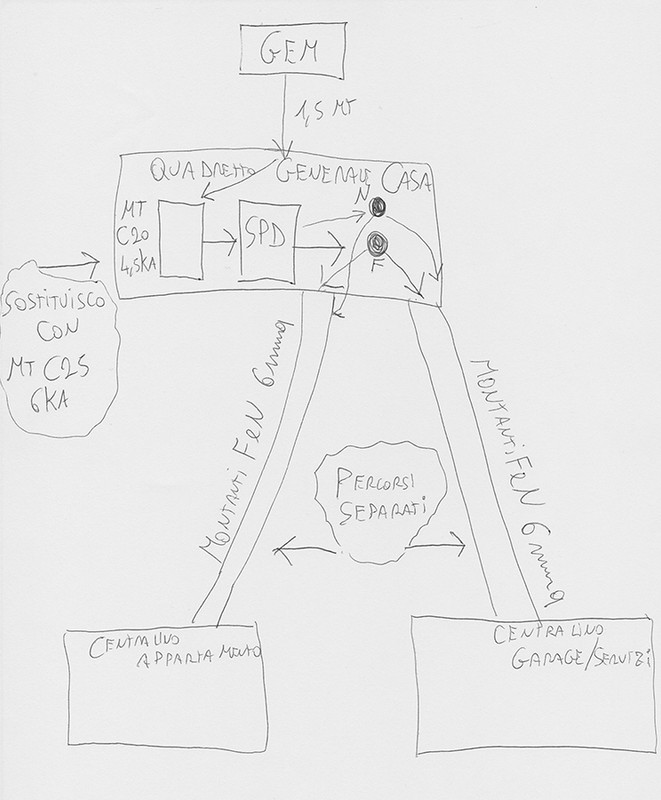 GEM
1,5 MT
QUADRETTO GENERALE CASA
N
MT
C20
4,5KA
SPD
F
SOSTITUISCO
CON
MT C25
6KA
MONTANTI F e N 6mmq
MONTANTI F e N 6mmq
PERCORSI
SEPARATI
CENTRALINO
APPARTAMENTO
CENTRALINO
GARAGE/SERVIZI